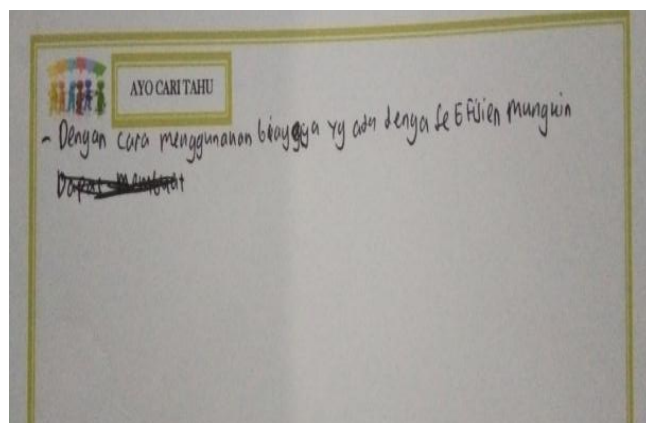 AYO CARI TAHU
- Dengan cara menggunakan biayaya yg ada denga se Efisien mungkin
Dapat membuat